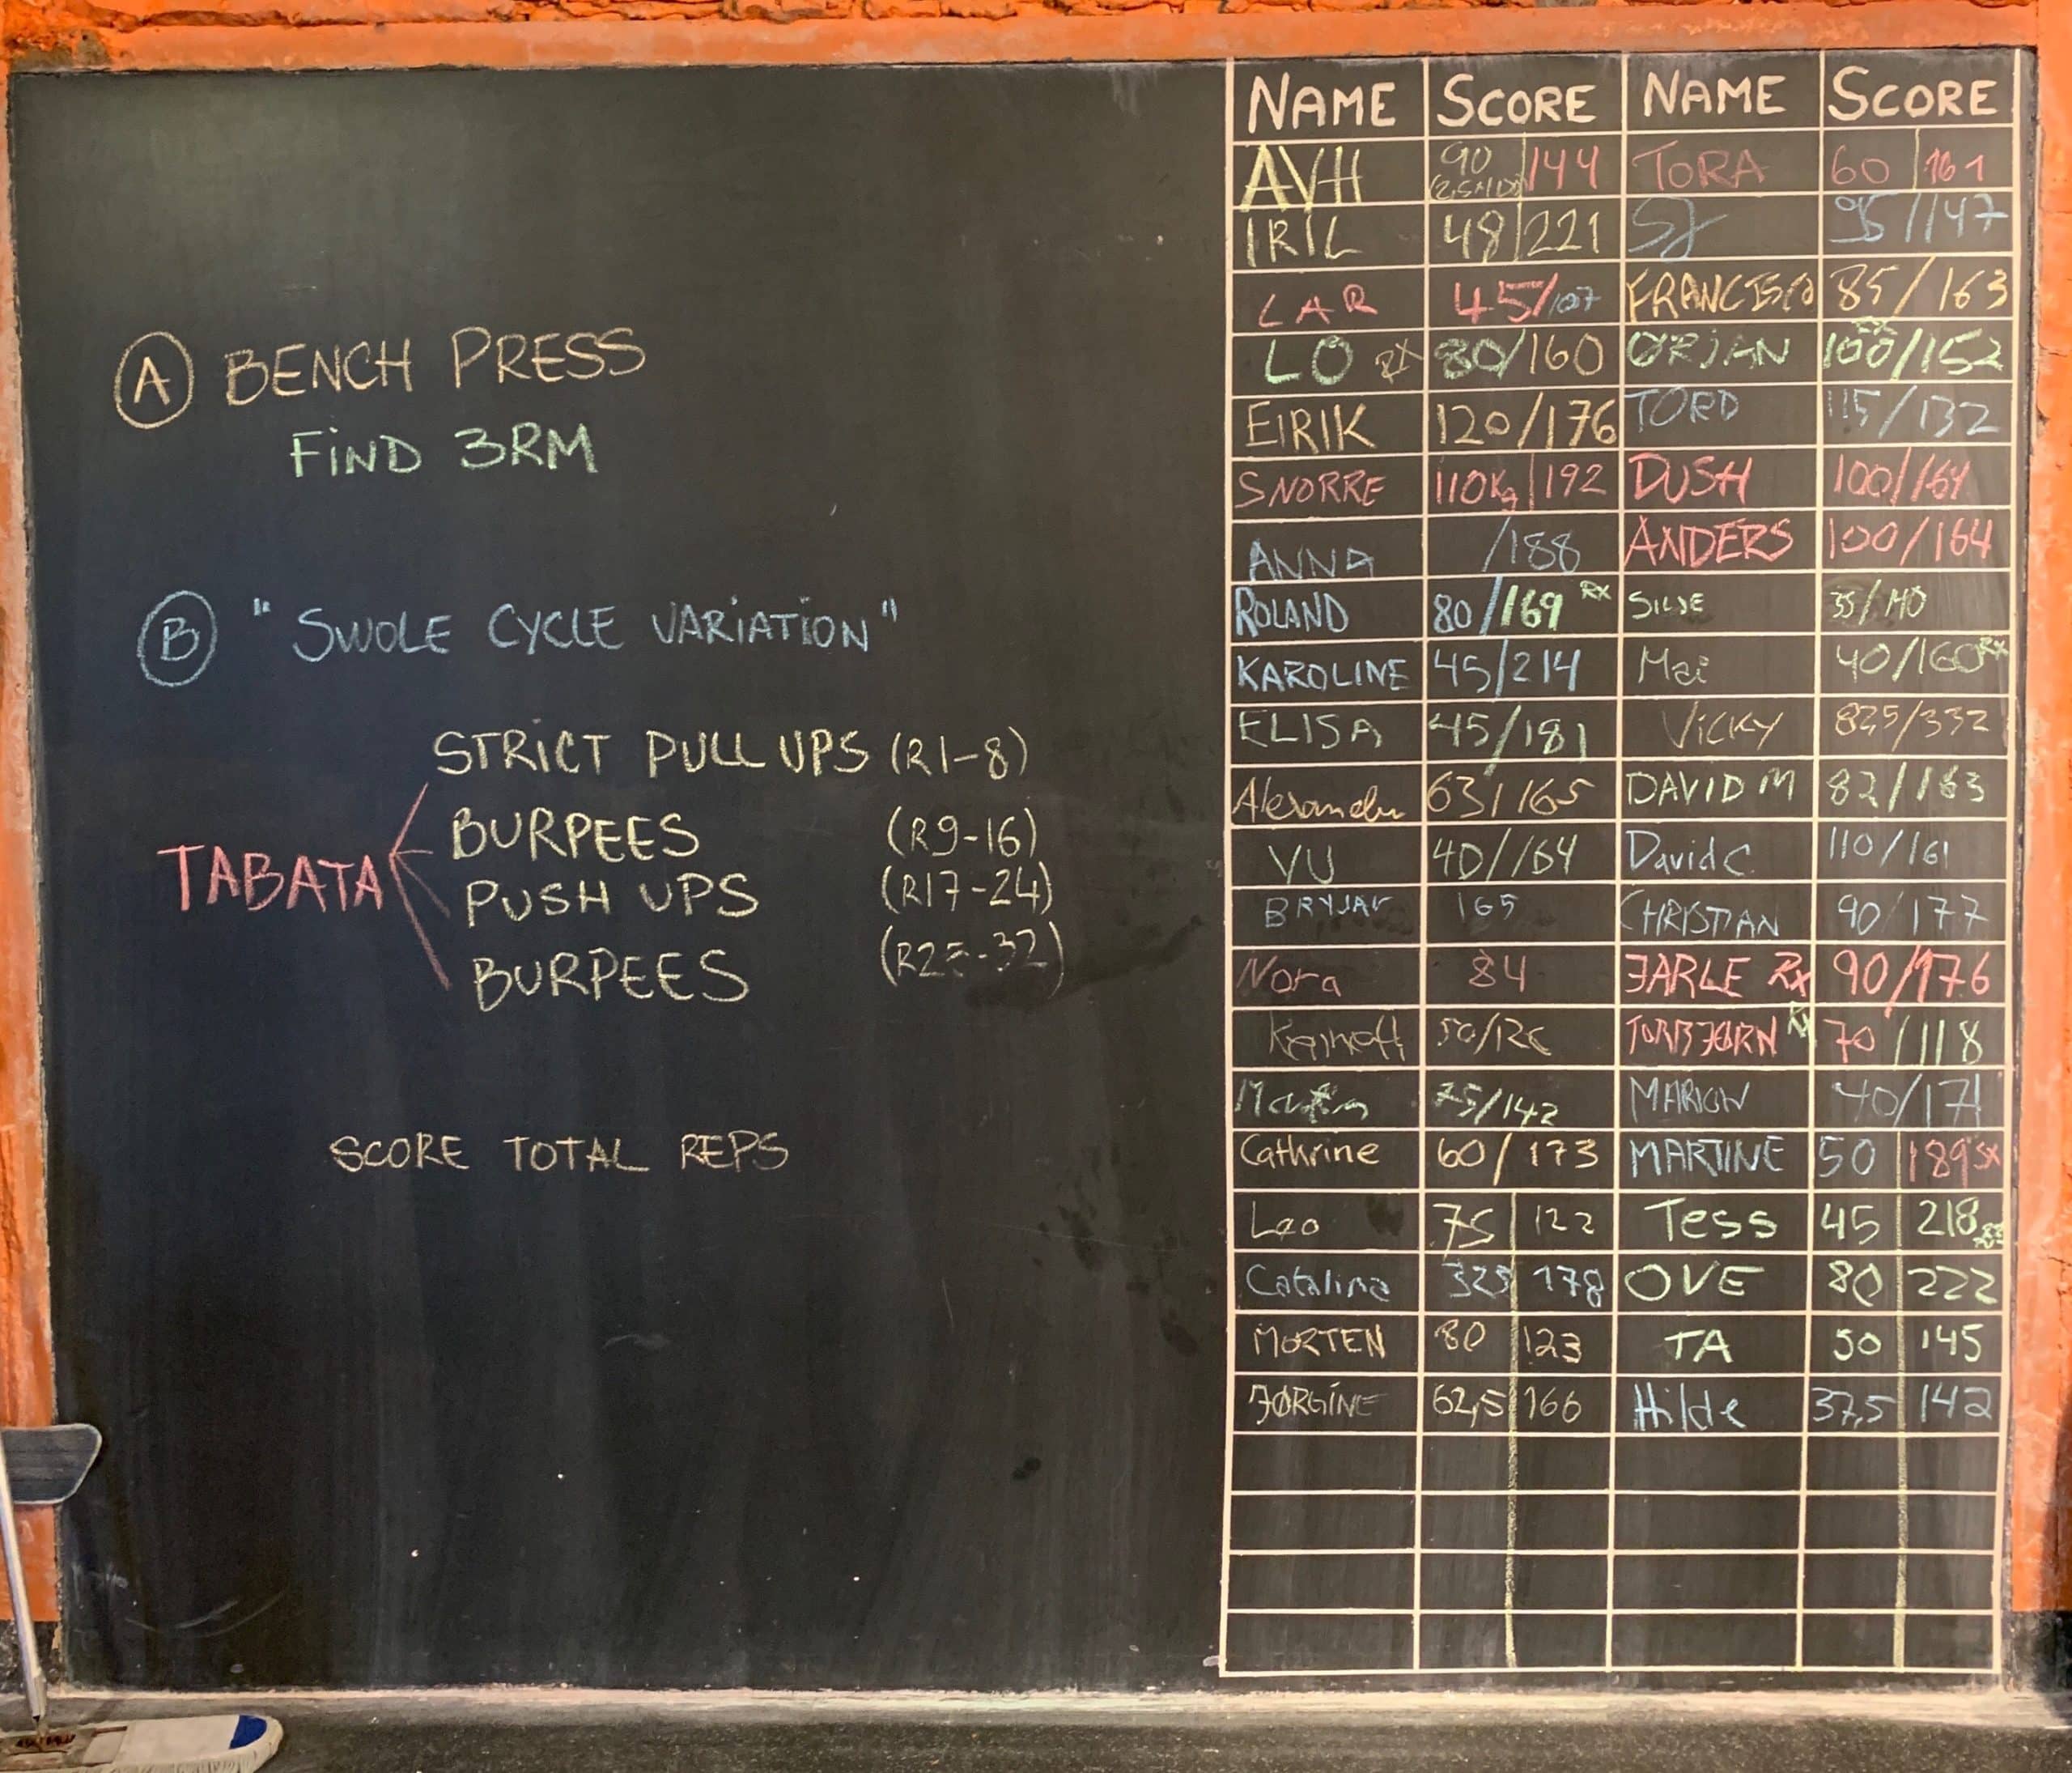 A BENCH PRESS
FIND 3RM
B "SWOLE CYCLE VARIATION"
TABATA
STRICT PULL UPS (R1-8)
BURPEES (R9-16)
PUSH UPS (R17-24)
BURPEES (R25-32)
SCORE TOTAL REPS
NAME SCORE NAME SCORE
AVH 90 144 TORA 60 161
IRIL 48 221 SJ 95/147
LAR 45/107 FRANCISCO 85/163
LO RX 80/160 ØRJAN 100/152
EIRIK 120/176 TORD 115/132
SNORRE 110Kg 192 DUSH 100/164
ANNA /188 ANDERS 100/164
ROLAND 80/169 RX SILJE 35/140
KAROLINE 45/214 Mai 40/160 RX
ELISA 45/181 VICKY 82,5/332
63/165 DAVID M 82/163
VU 40/164 David C. 110/161
165 CHRISTIAN 90/177
Nora 84 JARLE Rx 90/176
TORBJØRN RX 70/118
75/142 MARION 40/171
Cathrine 60/173 MARTINE 50 189 SX
Leo 75 122 Tess 45 218
Catalina 325 178 OVE 80 222
MORTEN 80 123 TA 50 145
JØRGINE 62,5 166 Hilde 37,5 142